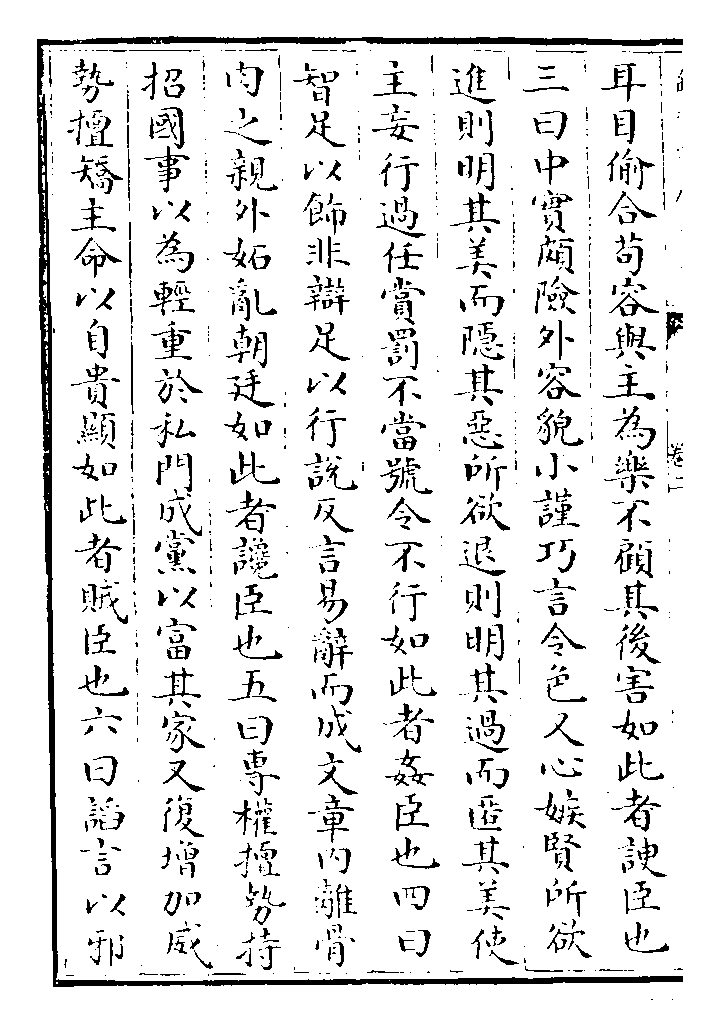 耳目偷合苟容與主為樂不顧其後害如此者諛臣也
三曰中實頗險外容貌小謹巧言令色又心嫉賢所欲
進則明其美而隱其惡所欲退則明其過而匿其美使
主妄行過任賞罰不當號令不行如此者姦臣也四曰
智足以飾非辯足以行說反言易辭而成文章內離骨
肉之親外妬亂朝廷如此者讒臣也五曰專權擅勢持
招國事以為輕重於私門成黨以富其家又復增加威
勢擅矯主命以自貴顯如此者賊臣也六曰謟言以邪
卷二